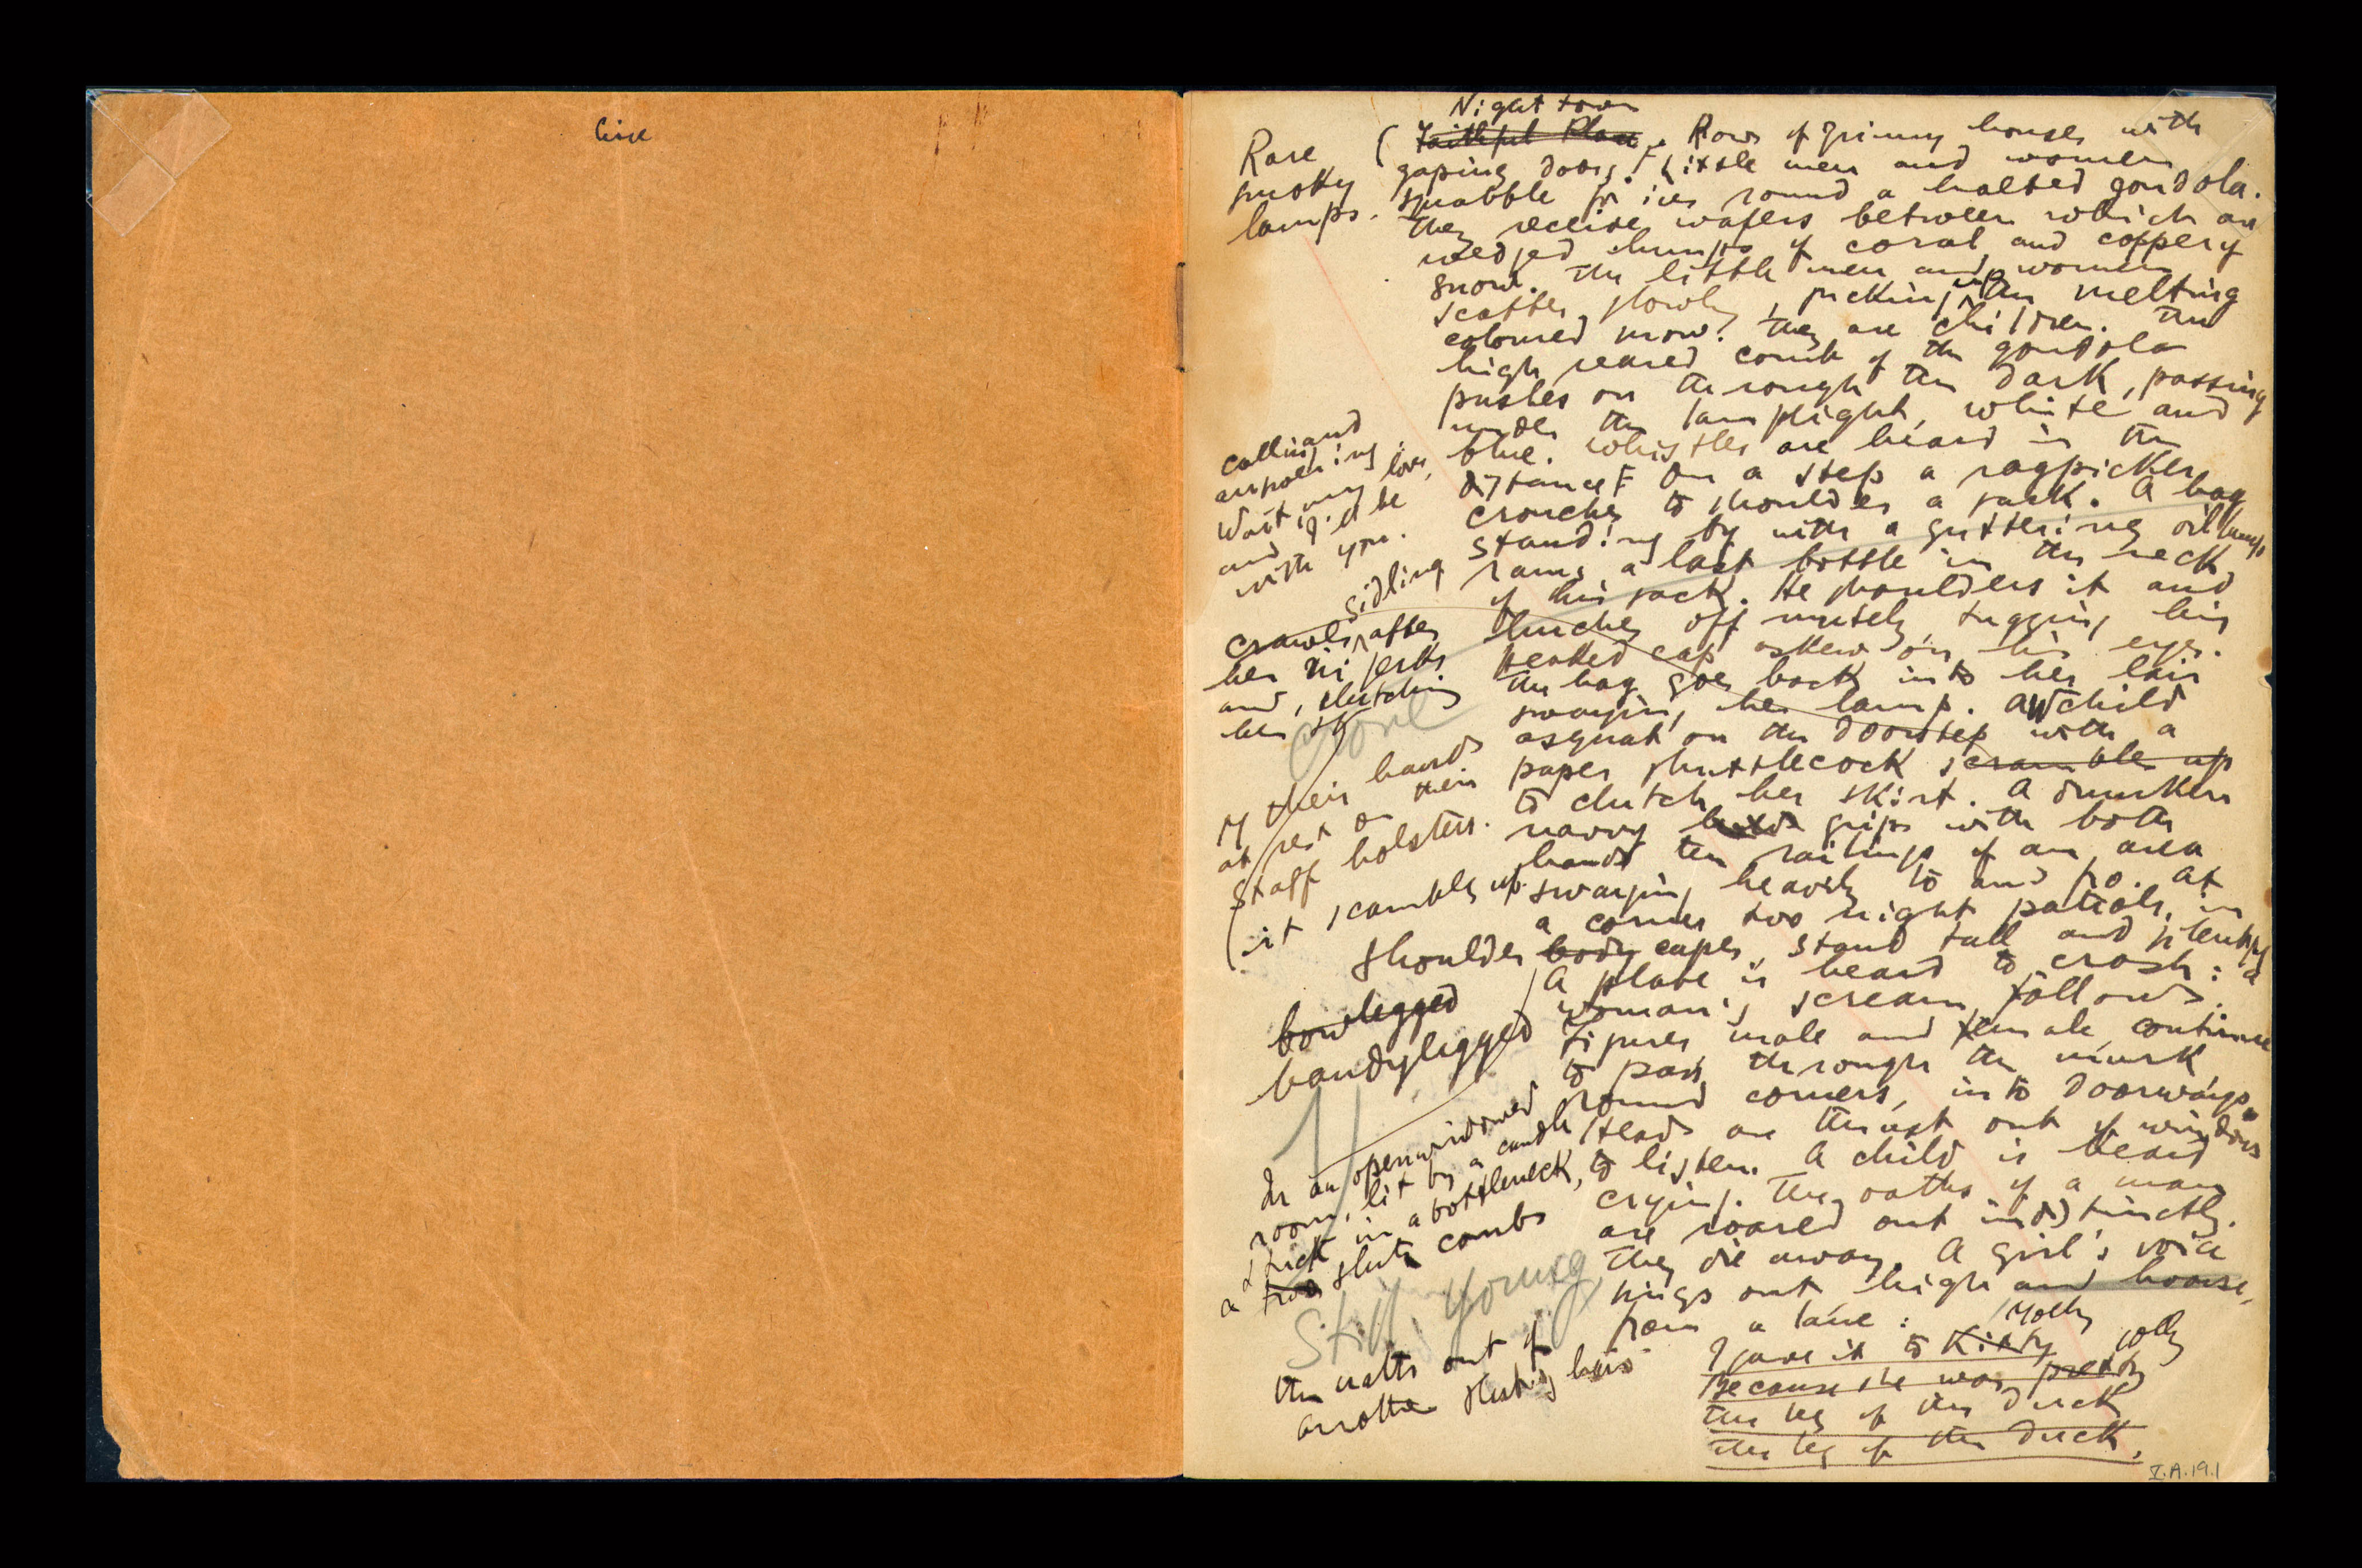 Circe
Night town
Faithful Place. Rows of grimy houses with
gaping doors. F Little men and women
squabble for ices round a halted gondola.
They receive wafers between which are
wedged lumps of coral and coppery
snow. The little men and women
scatter slowly, picking the melting
coloured snow. They are children. The
high reared comb of the gondola
pushes on through the dark, passing
under the lamplight, white and
blue. Whistles are heard in the
distance F On a step a ragpicker
crouches to shoulder a sack. A hag
standing by with a guttering oil lamp
rams a last bottle in the neck
of his sack. He shoulders it and
lurches off mutely tugging his
peaked cap askew on his eyes.
The hag goes back into her lair
swaying her lamp. A child
asquat on the doorstep with a
paper shuttlecock scrambles up
to clutch her skirt. A drunken
navvy holds grips with both
hands the railings of an area
swaying heavily to and fro. At
a corner two night patrols, in
shoulder body capes, stand tall and
A plate is heard to crash: a
woman's scream follows.
Figures male and female continue
to pass through the murk
round corners, into doorways.
Heads are thrust out of windows
to listen. A child is heard
crying. The oaths of a man
are roared out indistinctly.
They die away. A girl's voice
sings out high and hoarse,
from a lane:
Molly
I gave it to Kitty jolly
Because she was pretty
The leg of the duck
The leg of the duck.
Rare
smoky
lamps.
calling and
answering
Wait, my love,
and I'll be
with you.
crawls sidling after
her in jerks
and, clutching
her sk
done
M their hands
at rest on their
staff holsters.
(it scrambles up.
bowlegged
bandylegged
In an openwindowed
room, lit by a candle
stuck in a bottleneck,
a two slut combs
Still young
the tatts out of
another slut's hair
V.A.19.1